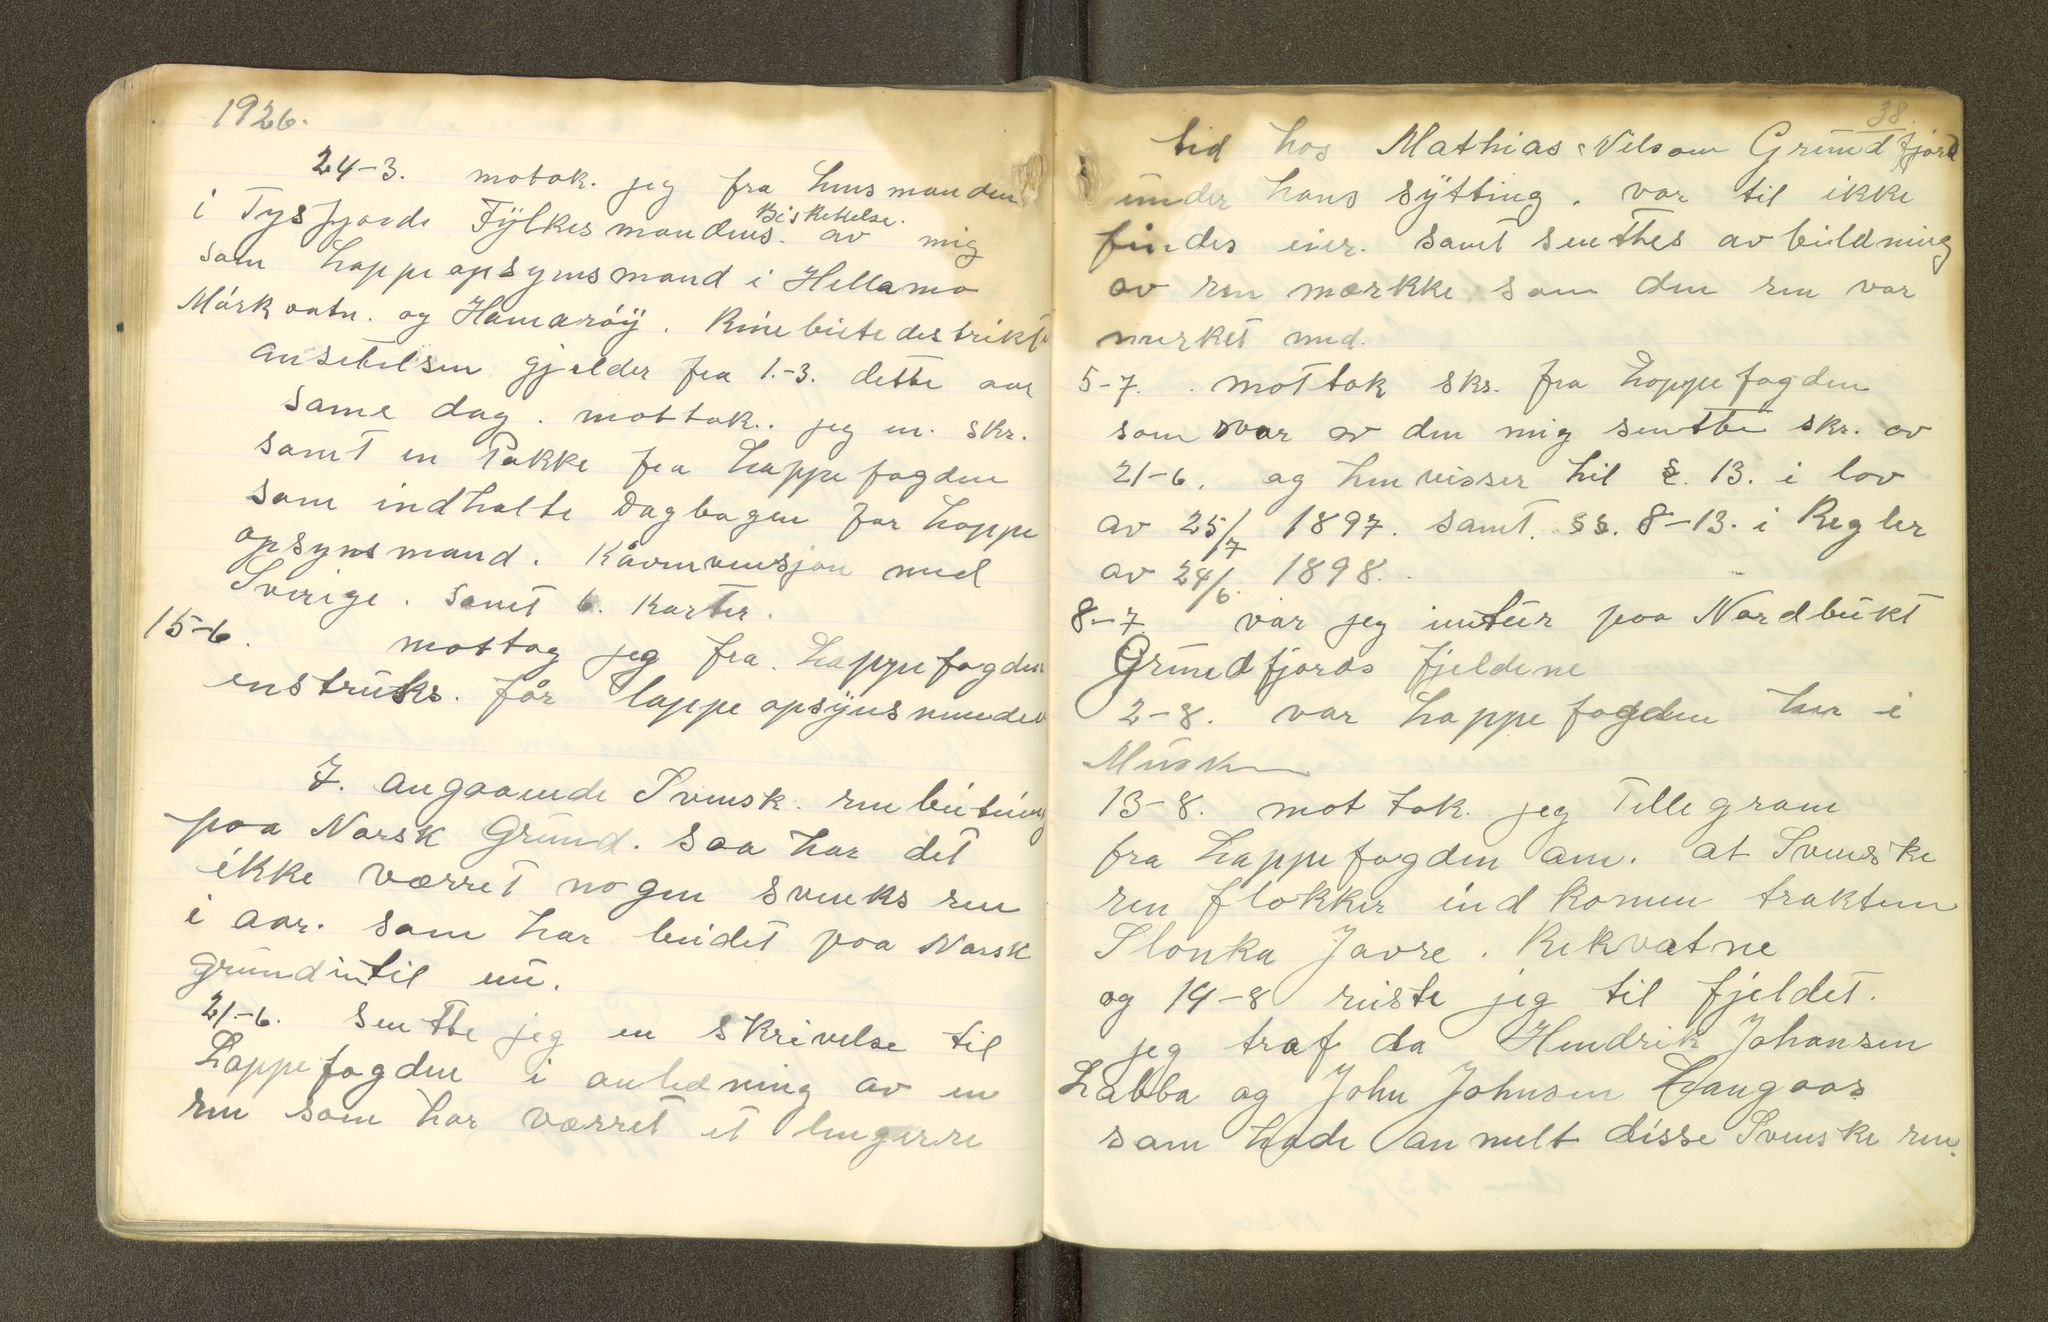 1926.
24-3. motok. jeg fra lensmanden
i Tysfjorde Fylkesmandens. Biskikkelse. av mig
som Lappeopsynsmand i Hellamo
Mårkvatn. og Hamarøy. Rinebiete destrikt
ansetelsen gjelder fra 1.-3. dette aar
same dag. mottok. jeg en. skr.
samt en Pakke fra Lappefogden
som indholte Dagbogen for Lappe
opsynsmand. Kåvenvensjon med
Sverige. samt 6. Karter.
15-6. mottog jeg fra. Lappefogden
enstruks. får lappeopsynsmenden
7. angaaende Svensk. renbeiting
paa Norsk Grund. saa har det
ikke værret nogen svenks ren
i aar. som har beidet paa Norsk
grund intil nu.
21-6. sentte jeg en skrivelse til
Lappefogden i anledning av en
ren som har værret et lengerre
38.
tid hos Mathias Nilsen Grundfjord
under hans sytting. vor til ikke
findes eier. samt senthes avbildning
av ren mærkke som den ren var
merket med.
5-7. mottok skr. fra Lappefogden
som svar av den mig sentte skr. av
21-6. og henvisser til §. 13. i lov
av 25/7 1897. samt. §§. 8-13. i Regler
av 24/6. 1898.
8-7 var jeg entur paa Nordbukt
Grundfjords fjeldene
2-8. var Lappefogden her i
Musken
13-8. mottok. jeg Tellegram
fra Lappefogden om. at Svenske
ren flokker indkomen traktene
Slonka Javre. Rekvatne
og 14-8 reiste jeg til fjeldet.
jeg traf da Hendrik Johansen
Labba og John Johnsen Langaas
som hade anmelt disse Svenske ren.